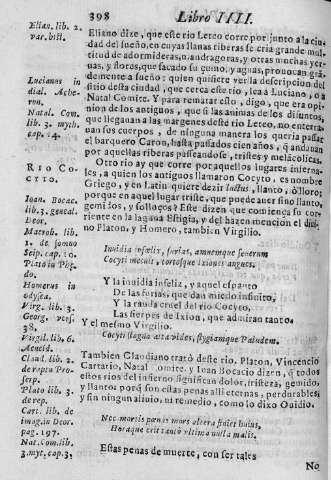 398
Libro IIII.
Elian. lib. 2.
var. hist.
Luciano in
dial. Ache-
ron.
Natal. Com.
lib. 3. myth.
cap. 14.
RIO CO-
CITO.
Ioan. Bocac.
lib. 3. geneal.
Deor.
Macrob. lib.
1. de somno
Scip. cap. 10.
Plato in Phę-
do.
Homerus in
odysea.
Virg. lib. 3.
Georg. vers.
38.
Virgil. lib. 6.
Aeneid.
Claud. lib. 2.
de raptu Pro-
serp.
Plato lib. 3.
de rep.
Cart. lib. de
imagin Deor.
pag. 197.
Nat. Com. lib.
3. myt. cap. 3.
Eliano dize, que este rio Leteo corre por junto a la ciu-
dad del sueño, en cuyas llanas riberas se cria grande mul-
titud de adormideras, mandragoras, y otras muchas yer-
uas, y flores, que sacado su çumo, y aguas, prouocan grã-
demente a sueño: quien quisiere ver la descripcion del
sitio desta ciudad, que cerca este rio, lea à Luciano, o à
Natal Comite. Y para rematar esto, digo, que era opi-
nion de los antiguos, que si las animas de los difuntos,
que llegauan a las margenes deste rio Leteo, no enterra-
uan sus cuerpos, de ninguna manera los queria passar
el barquero Caron, hasta passados cien años, q̃ andauan
por aquellas riberas passeandose, tristes y melãcolicas.
Otro rio ay que corre por aquellos lugares interna-
les, a quien los antiguos llamaron Cocyto, es nombre
Griego, y en Latin quiere dezir luctus, llanto, ò lloro,
porque en aquel lugar triste, que puede auer sino llanto,
gemidos, y sollozos? Este dizen que comiença su cor-
riente en la laguna Estigia, y del hazen mencion el diui-
no Platon, y Homero, tambien Virgilio.
Inuidia infœlix, furias, amnemque seuerum
Cocyti metuit, tortosque Ixionis angues.
Y la inuidia infeliz, y aquel espanto
De las furias, que dan miedo infinito,
Y la rauda cruel del rio Cocyto,
Las sierpes de Ixion, que admiran tanto.
Y el mesmo Virgilio.
Cocyti stagna alta vides, stygiamque Paludem.
Tambien Claudiano tratò deste rio. Platon, Vincencio
Cartario, Natal Comite. y Ioan Bocacio dizen, q̃ todos
estos rios del infierno significan dolor, tristeza, gemido,
y llanto, porq̃ son estas penas alli eternas, perdurables,
y sin ningun aliuio, ni remedio, como lo dixo Ouidio.
Nec mortis pœnas mors altera finiet huius,
Horaque erit tantis vltima nulla malis.
Estas penas de muerte, con ser tales
No